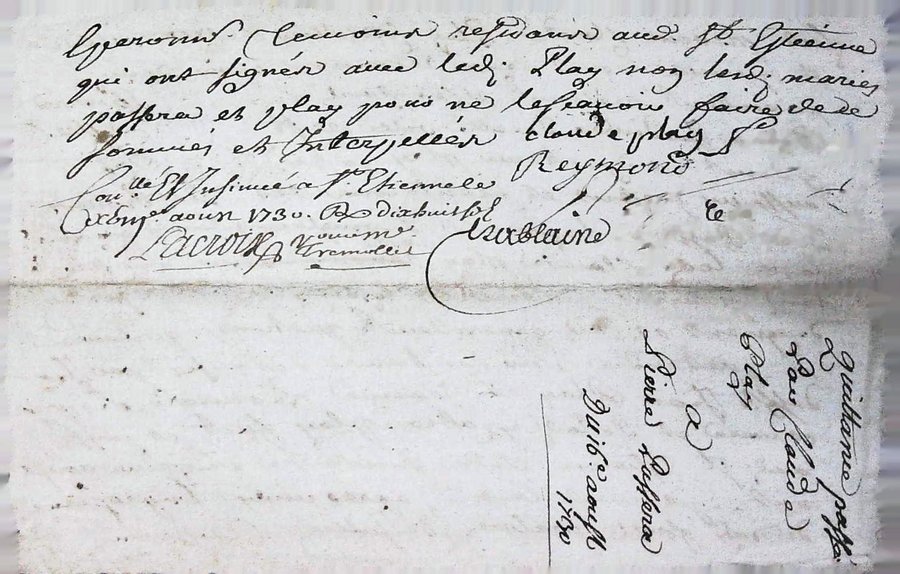 temoins residans aud. St. Estienne
qui ont signés avec led. Play non lesd. mariés
passera et play pour ne le scavoir faire de ce
sommés et Interpellés claude play
Reymond
Con.lle Et Insinué a St. Etienne le
aoust 1730. R dixhuit sol
Lacroix
Chablaine
Quittance passée
Par Claude
Play
a
Pierre Passera
Du 16e aoust
1730